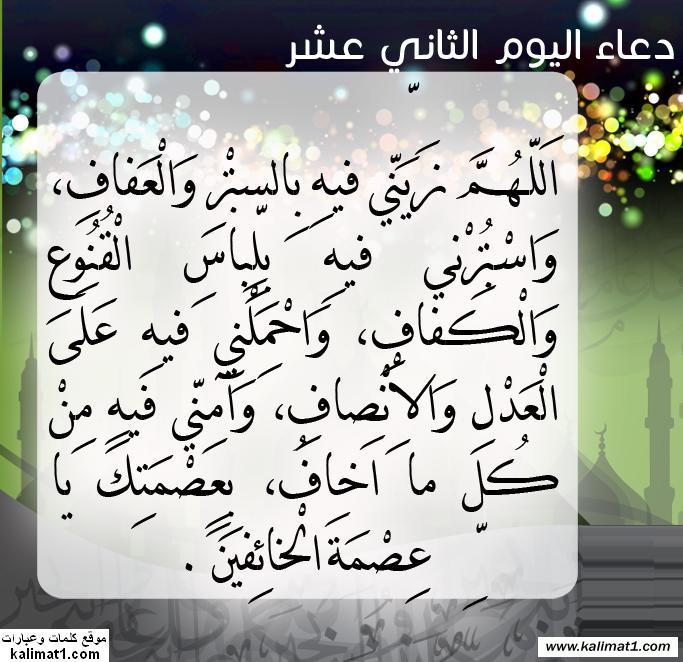 دعاء اليوم الثاني عشر
اَللّهُمَّ زَيِّنّي فيهِ بِالستِّْرِ وَالْعَفافِ،
وَاسْتُرْني فيهِ بِلِباسِ الْقُنُوعِ
وَالْكَفافِ، وَاحْمِلْني فيهِ عَلَى
الْعَدْلِ وَالاْنْصافِ، وَآمِنّي فيهِ مِنْ
كُلِّ ما اَخافُ، بِعِصْمَتِكَ يا
عِصْمَةَ الْخائِفينَ .
موقع كلمات وعبارات
kalimat1.com
www.kalimat1.com